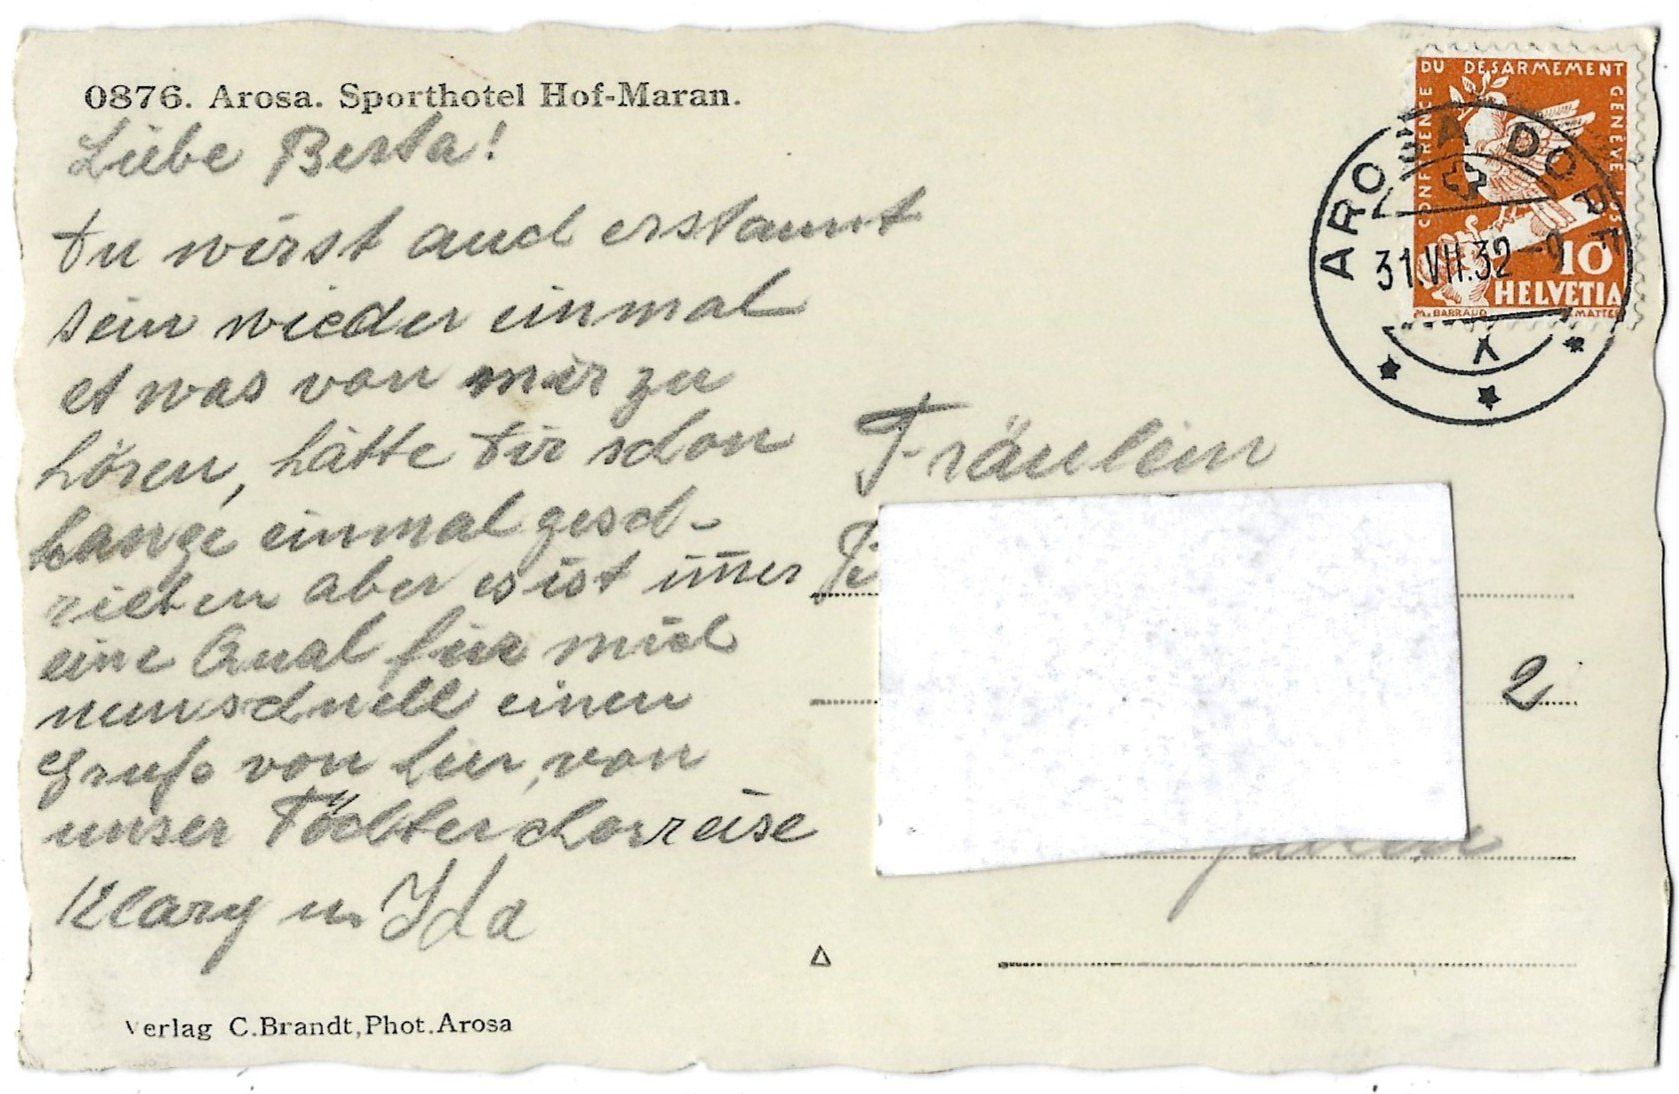 0876. Arosa. Sporthotel Hof-Maran.
Liebe Berta!
Du wirst auch erstaunt
sein wieder einmal
etwas von mir zu
hören, hätte Dir schon
lange einmal gesch-
rieben aber es ist im̅er
eine Qual für mich
nun schnell einen
Gruß von hier, von
unser Töchterchorreise
Klary u. Ida
Verlag C. Brandt, Phot. Arosa
CONFÉRENCE DU DÉSARMEMENT GENÈVE
10
HELVETIA
M. BARRAUD
AROSA DORF
31.VII.32-9
X
Fräulein
2